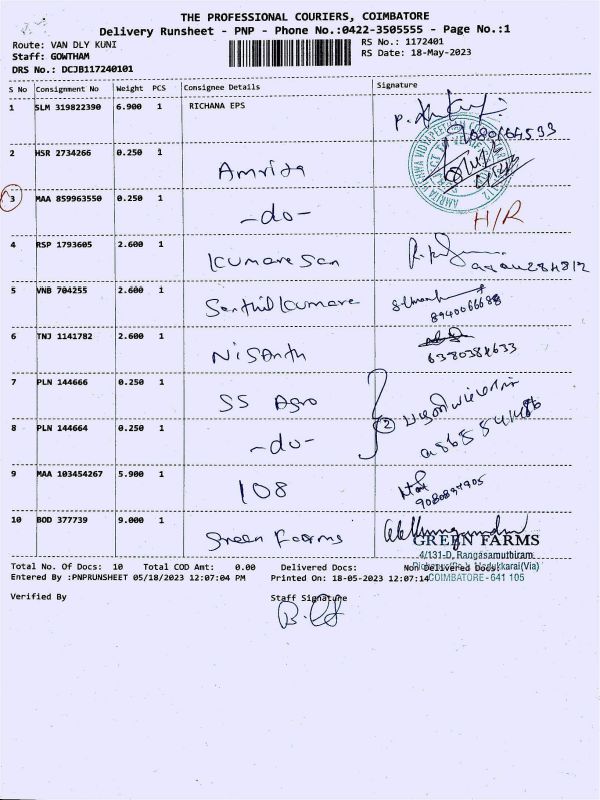 THE PROFESSIONAL COURIERS, COIMBATORE
Delivery Runsheet - PNP - Phone No.:0422-3505555 - Page No.:1
Route: VAN DLY KUNI
RS No.: 1172401
Staff: GOWTHAM
RS Date: 18-May-2023
DRS No.: DCJB117240101
S No Consignment No Weight PCS Consignee Details Signature
1 SLM 319822390 6.900 1 RICHANA EPS
2 HSR 2734266 0.250 1 Amrita
3 MAA 859963550 0.250 1 -do- H/R
4 RSP 1793605 2.600 1 Kumaresan
5 VNB 704255 2.600 1 Senthilkumare
8940066688
6 TNJ 1141782 2.600 1 Nisanth
6380384633
7 PLN 144666 0.250 1 SS Agro
8 PLN 144664 0.250 1 -do- 2
9 MAA 103454267 5.900 1 108
9080897905
10 BOD 377739 9.000 1 Green Foorms
GREEN FARMS
4/131-D, Rangasamuthiram
Madukkarai(Via)
COIMBATORE - 641 105
Total No. Of Docs: 10 Total COD Amt: 0.00 Delivered Docs: Non Delivered Docs:
Entered By :PNPRUNSHEET 05/18/2023 12:07:04 PM Printed On: 18-05-2023 12:07:14
Verified By Staff Signature